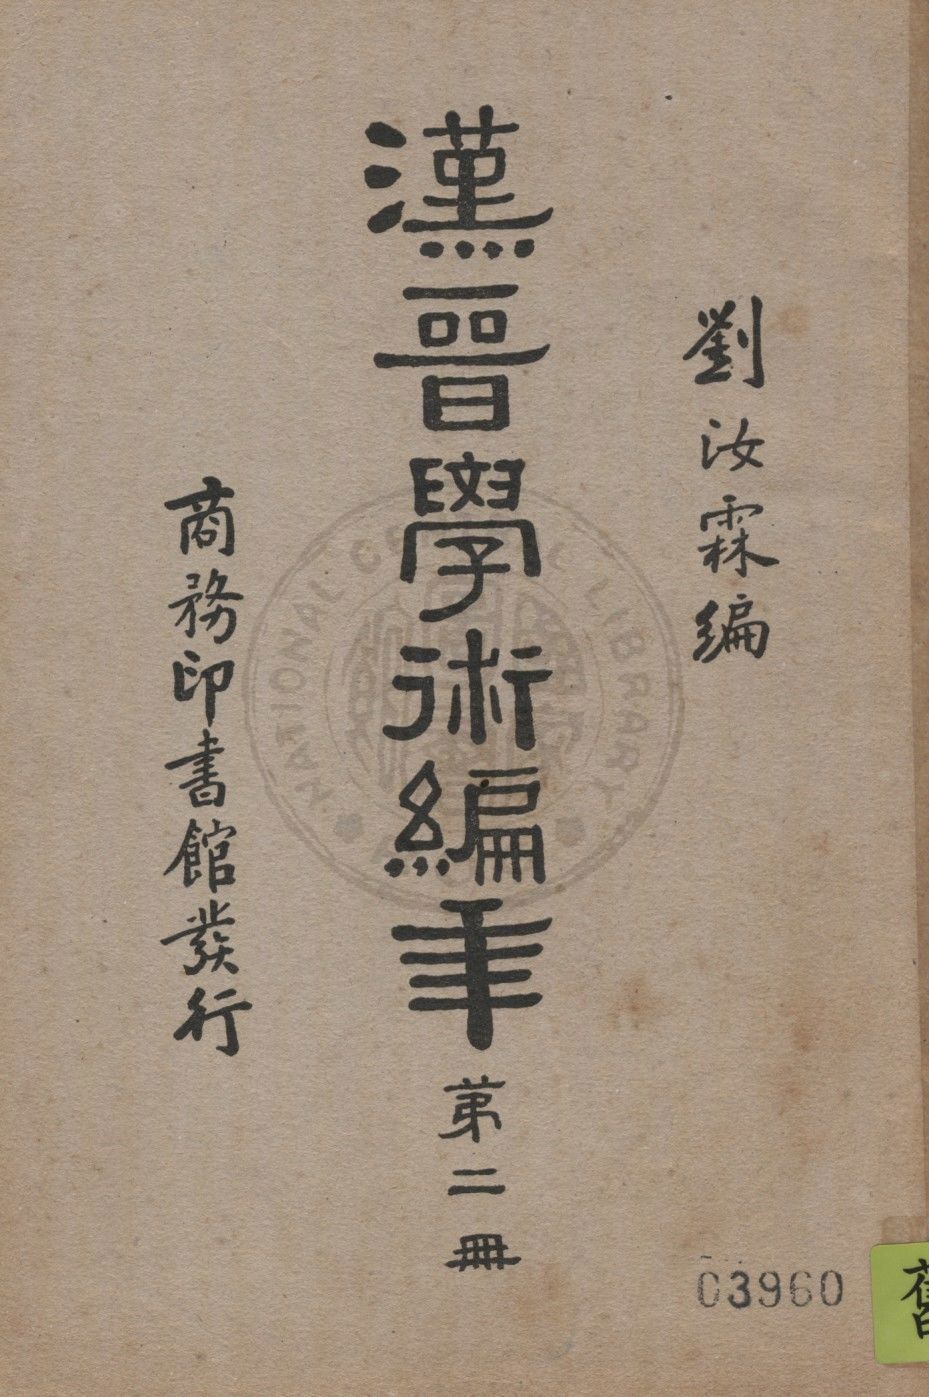 劉汝霖編
漢晉學術編年
第二冊
商務印書館發行
NATIONAL CENTRAL LIBRARY
03960
舊